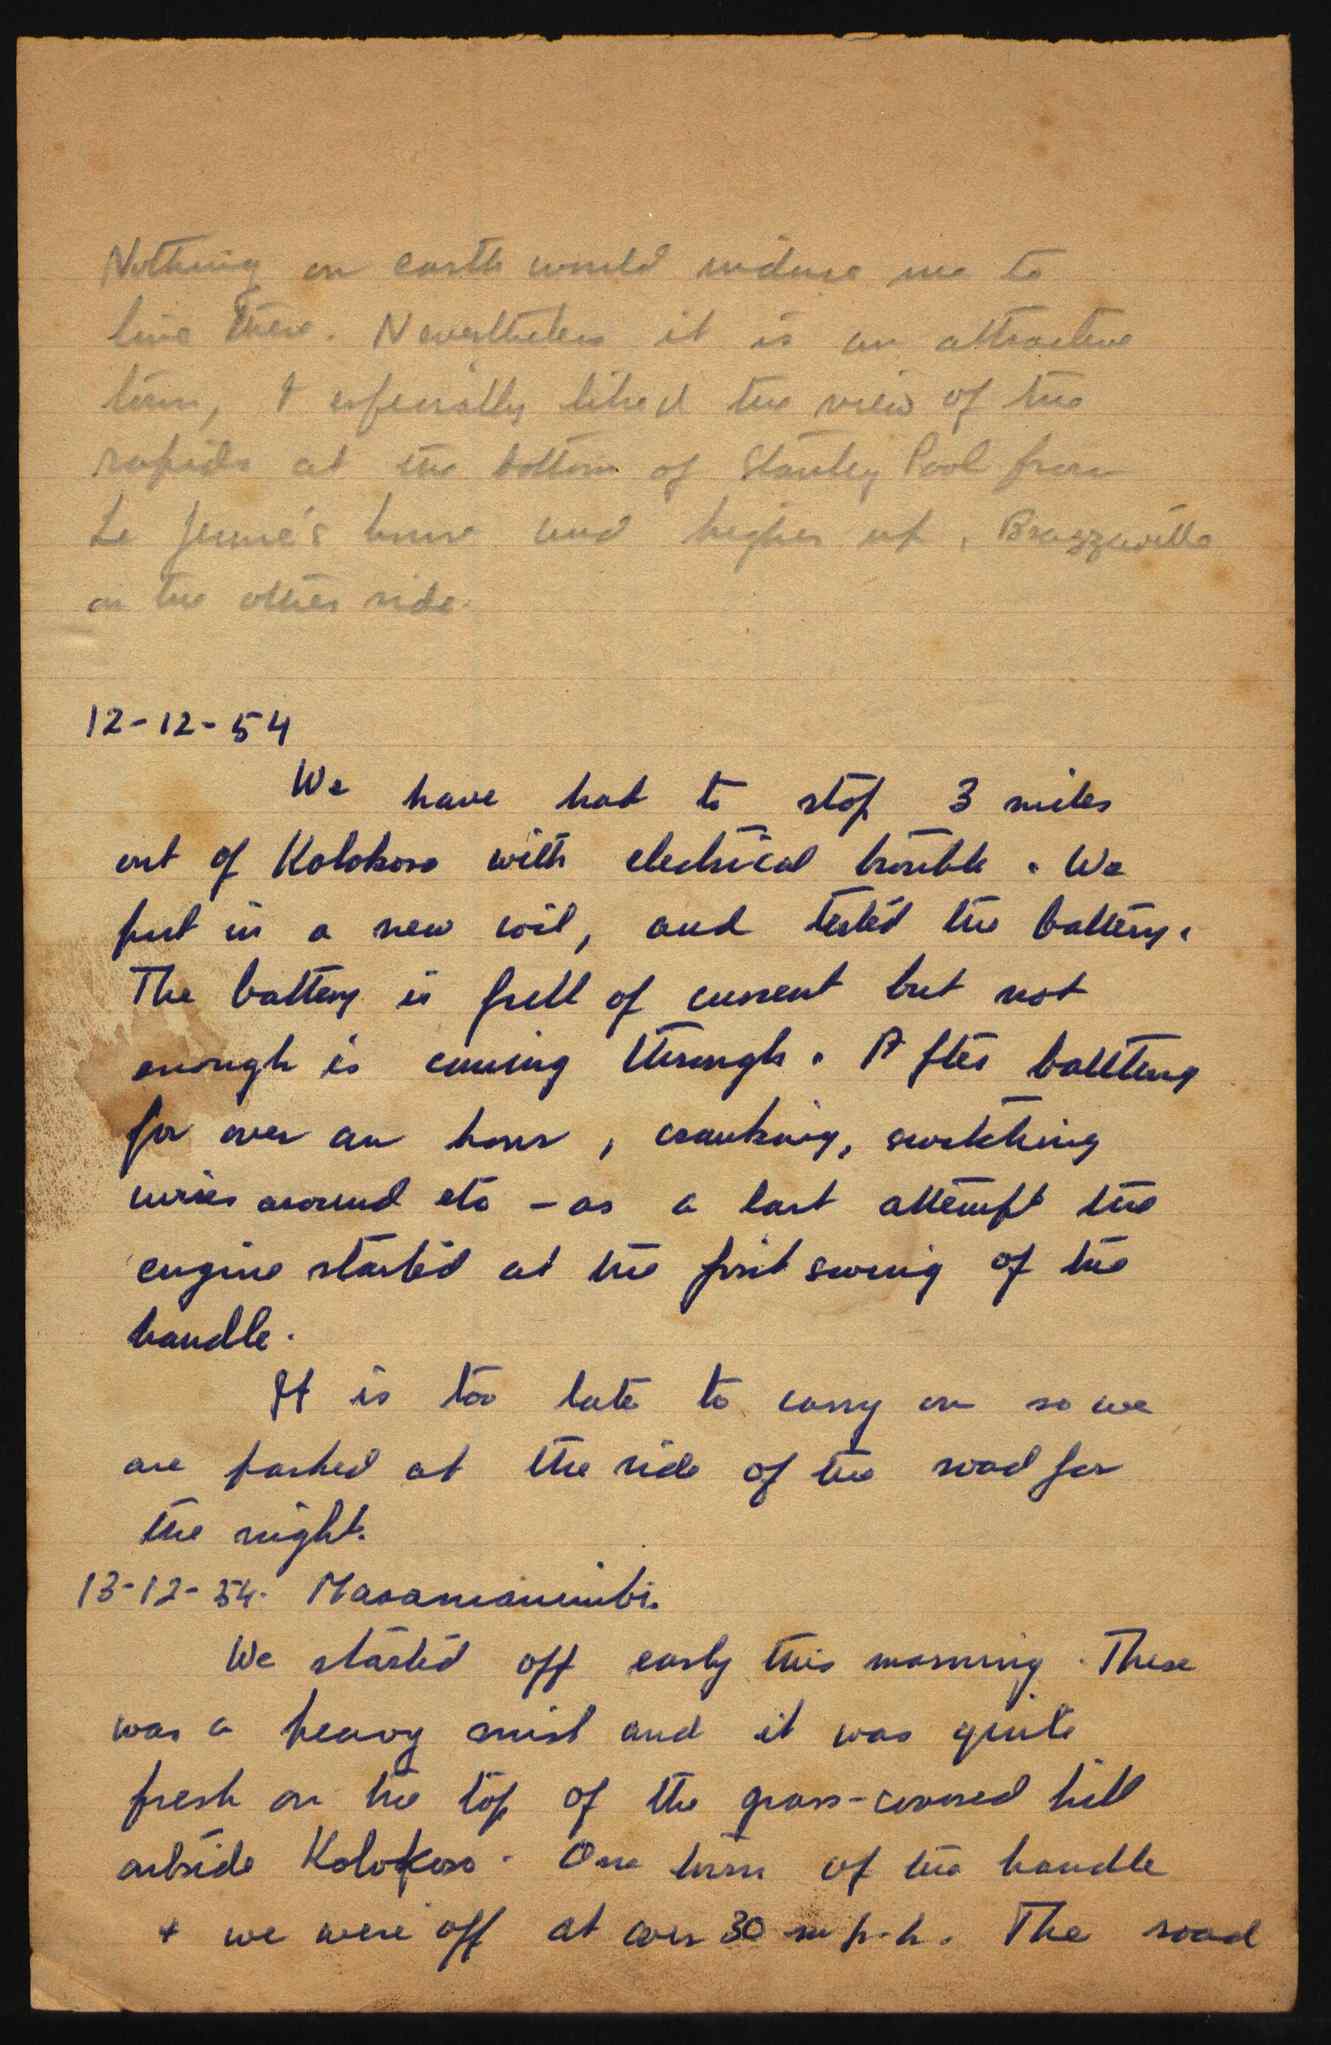 Nothing on earth would induce me to
live there. Nevertheless it is an attractive
town, I especially liked the view of the
rapids at the bottom of Stanley Pool from
Le Jeune's house and higher up, Brazzaville
on the other side.
12-12-54
We have had to stop 3 miles
out of Kolokoso with electrical trouble. We
put in a new coil, and tested the battery.
The battery is full of current but not
enough is coming through. After battling
for over an hour, cranking, switching
wires around etc - as a last attempt the
engine started at the first swing of the
handle.
It is too late to carry on so we
are parked at the side of the road for
the night.
13-12-54. Masamanimbi.
We started off early this morning. There
was a heavy mist and it was quite
fresh on the top of the grass-covered hill
outside Kolokoso. One turn of the handle
+ we were off at over 30 m.p.h. The road